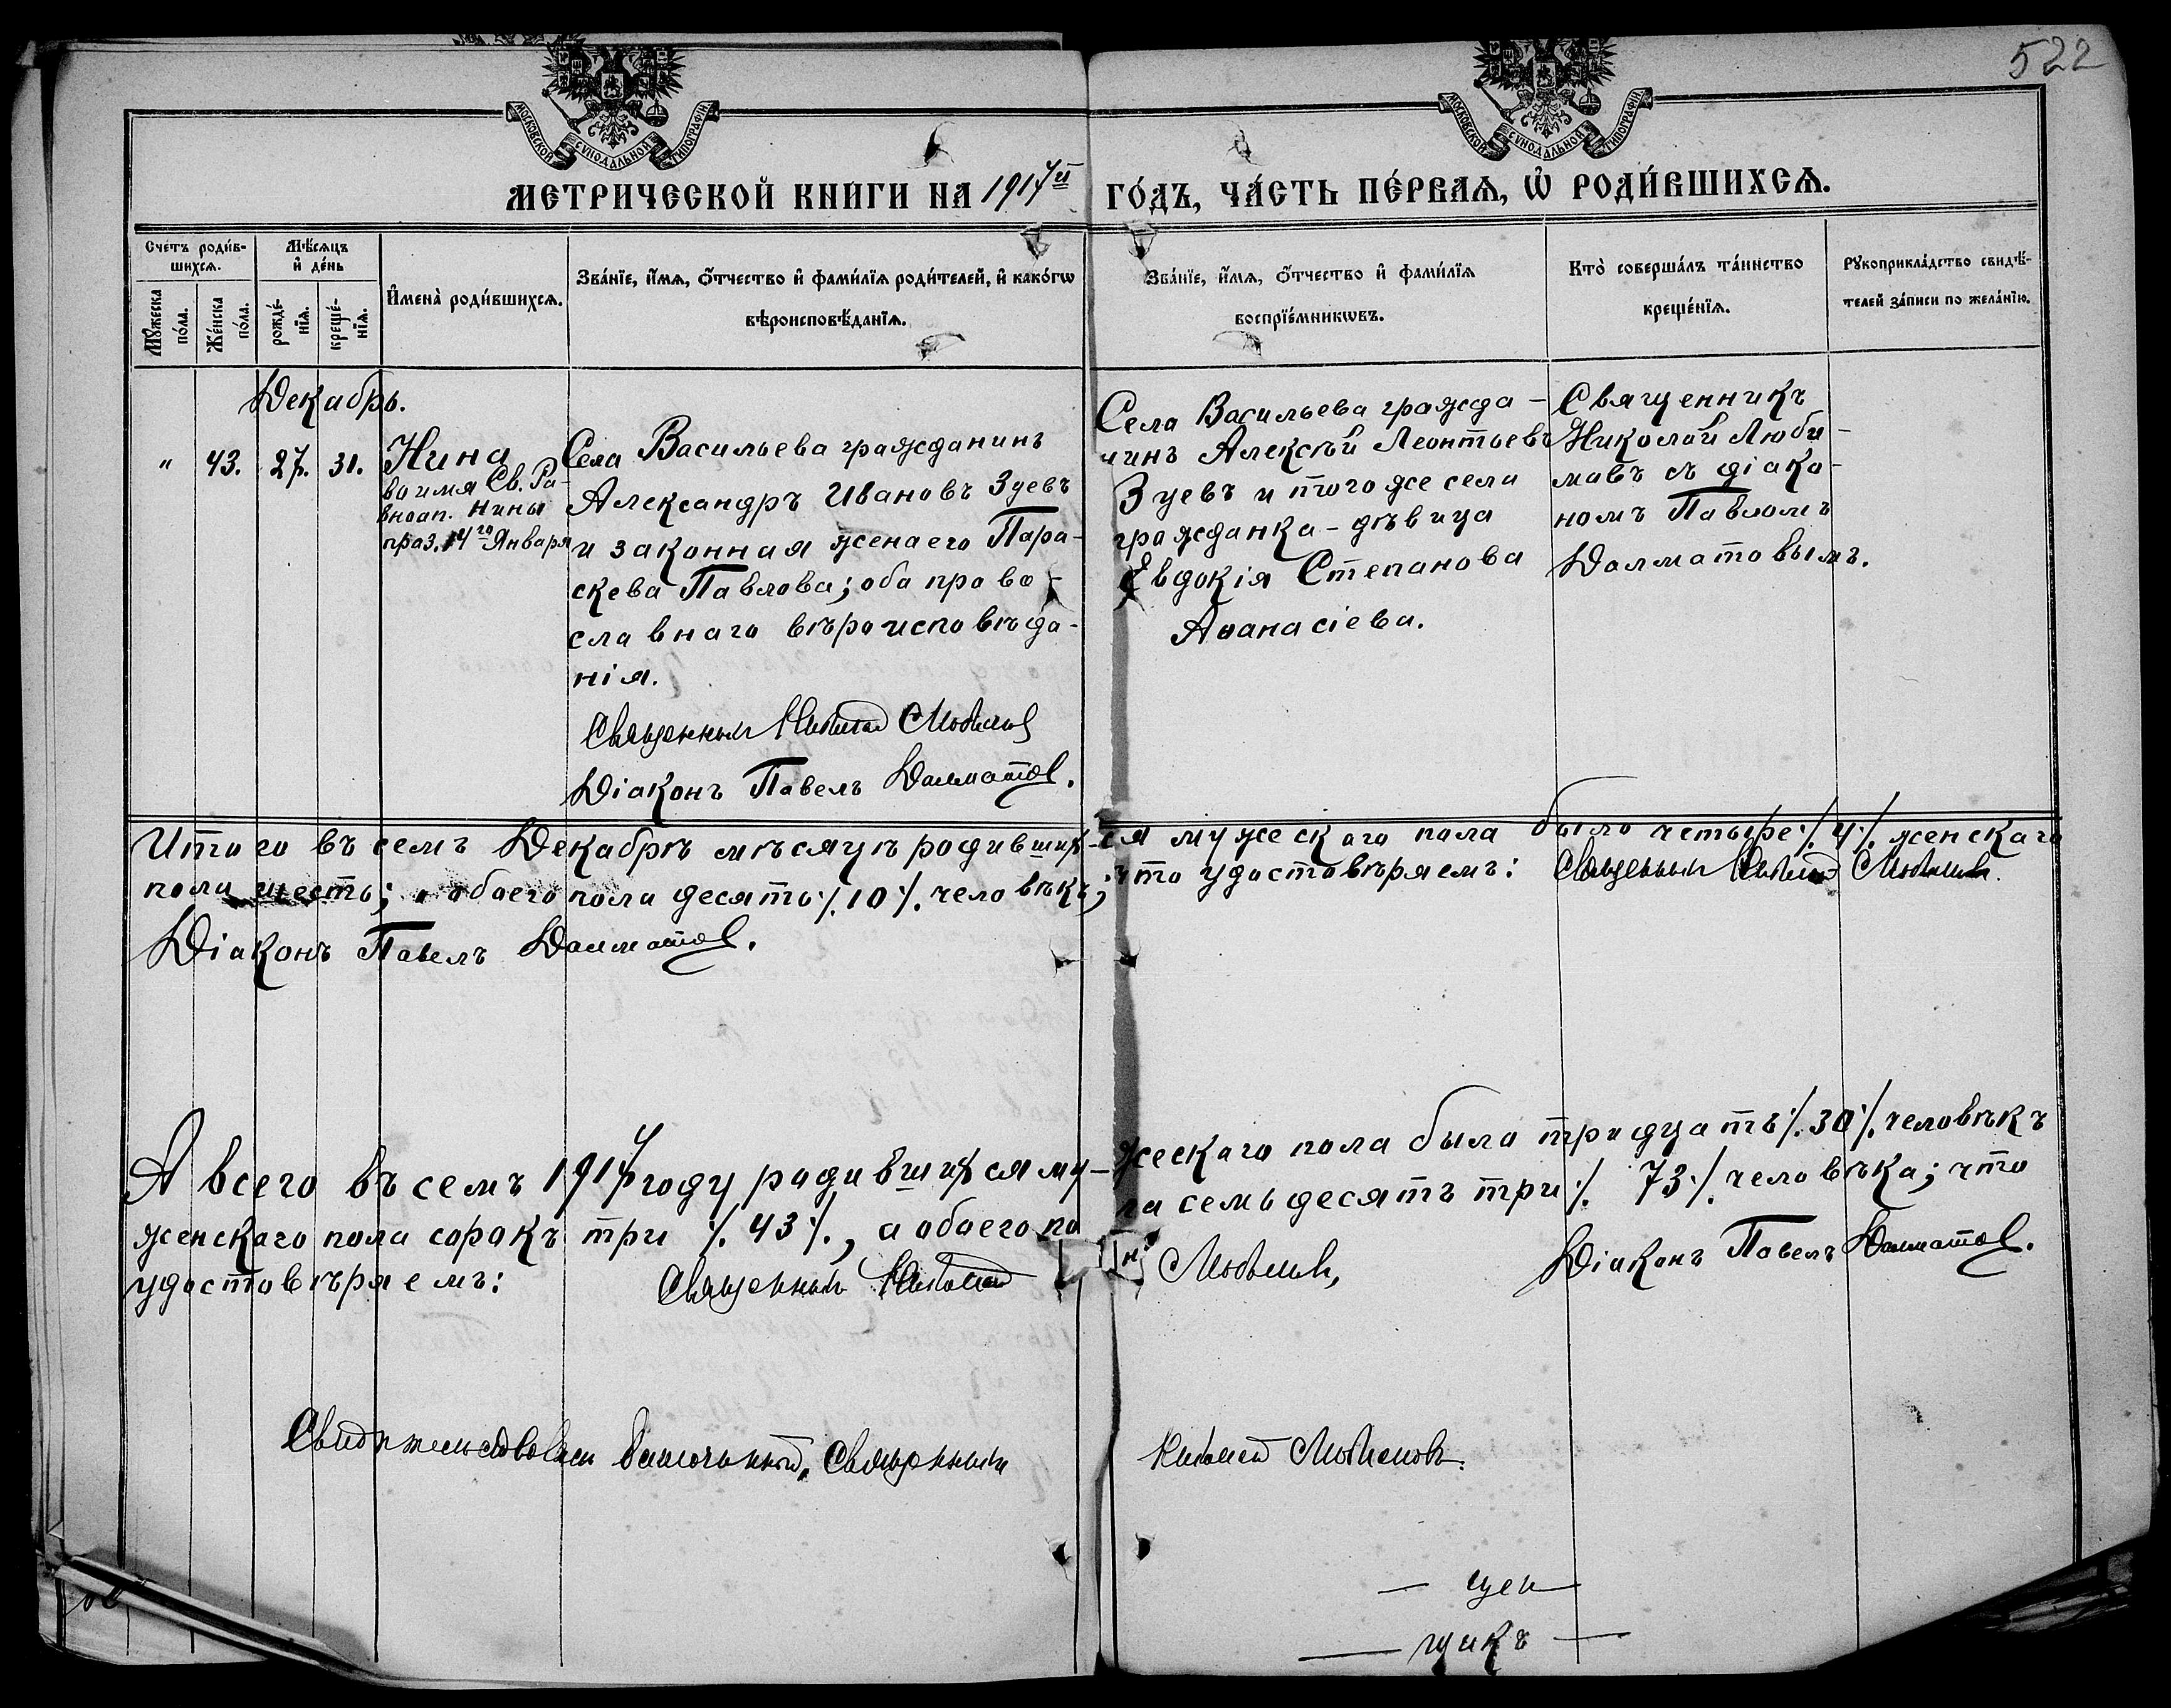 522
МОСКОВСКОЙ СѴНОДАЛЬНОЙ ТИПОГРАФІИ
МОСКОВСКОЙ СѴНОДАЛЬНОЙ ТИПОГРАФІИ
МЕТРИЧЕСКОЙ КНИГИ НА 1917й ГО́ДЪ, ЧА́СТЬ ПЕ́РВАѦ, Ѡ҆ РОДИ́ВШИХСѦ.
Сче́тъ роди́в-
шихсѧ.
Мꙋ́жеска
по́ла.
Же́нска
по́ла.
Мѣ́сѧцъ
и҆ де́нь
рожде́-
нїѧ.
креще́-
нїѧ.
И҆мена̀ роди́вшихсѧ.
Зва́нїе, и҆́мѧ, ѻ҆́тчество и҆ фами́лїѧ роди́телей, и҆ како́гѡ
вѣроисповѣ́данїѧ.
Зва́нїе, и҆́мѧ, ѻ҆́тчество и҆ фами́лїѧ
воспрїе́мникѡвъ.
Кто̀ соверша́лъ та́инство
креще́нїѧ.
Рꙋкоприкла́дство свидѣ́-
телей за́писи по жела́нїю.
Декабрь.
" 43. 27. 31.
Нина
во имя Св. Ра-
вноап. Нины
праз. 14го Января
Села Васильева гражданинъ
Александръ Ивановъ Зуевъ
и законная жена его Пара-
скева Павлова; оба право-
славнаго вѣроисповѣда-
нія.
Священникъ Николай Любимов
Діаконъ Павелъ Далматов.
Села Васильева гражда-
нинъ Алексѣй Леонтьевъ
Зуевъ и того же села
гражданка-дѣвица
Евдокія Степанова
Аѳанасіева.
Священникъ
Николай Люби-
мовъ съ діако-
номъ Павломъ
Далматовымъ.
Итого въ семъ Декабрѣ мѣсяцѣ родивших-ся мужескаго пола было четыре ٪ 4 ٪ женскаго
пола шесть; а обоего пола десять ٪ 10 ٪ человѣкъ; что удостовѣряемъ: Священникъ Николай Любимовъ.
Діаконъ Павелъ Далматов.
А всего въ семъ 1917 году родившихся му-жескаго пола было тридцать ٪ 30 ٪ человѣкъ
женскаго пола сорокъ три ٪ 43 ٪, а обоего по ла семьдесятъ три ٪ 73 ٪ человѣка; что
удостовѣряемъ: Священникъ Николай Любимовъ, Діаконъ Павелъ Далматов.
Свидѣтельствовалъ благочинный, Священникъ Николай Любимовъ.
— щен —
— щикъ —